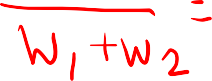 W₁+W₂ =